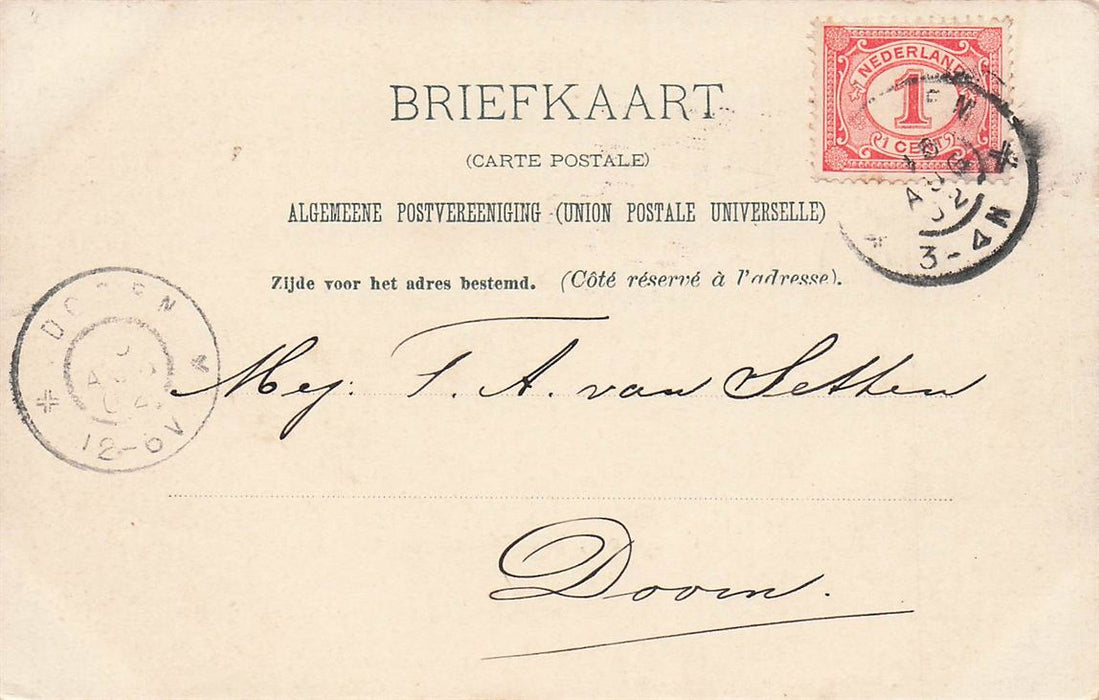 BRIEFKAART
(CARTE POSTALE)
ALGEMEENE POSTVEREENIGING (UNION POSTALE UNIVERSELLE)
Zijde voor het adres bestemd. (Côté réservé à l'adresse).
NEDERLAND
1
1 CENT
3-4N
DOORN
AUG
02
12-6V
Mej: T. A. van Setten
Doorn.